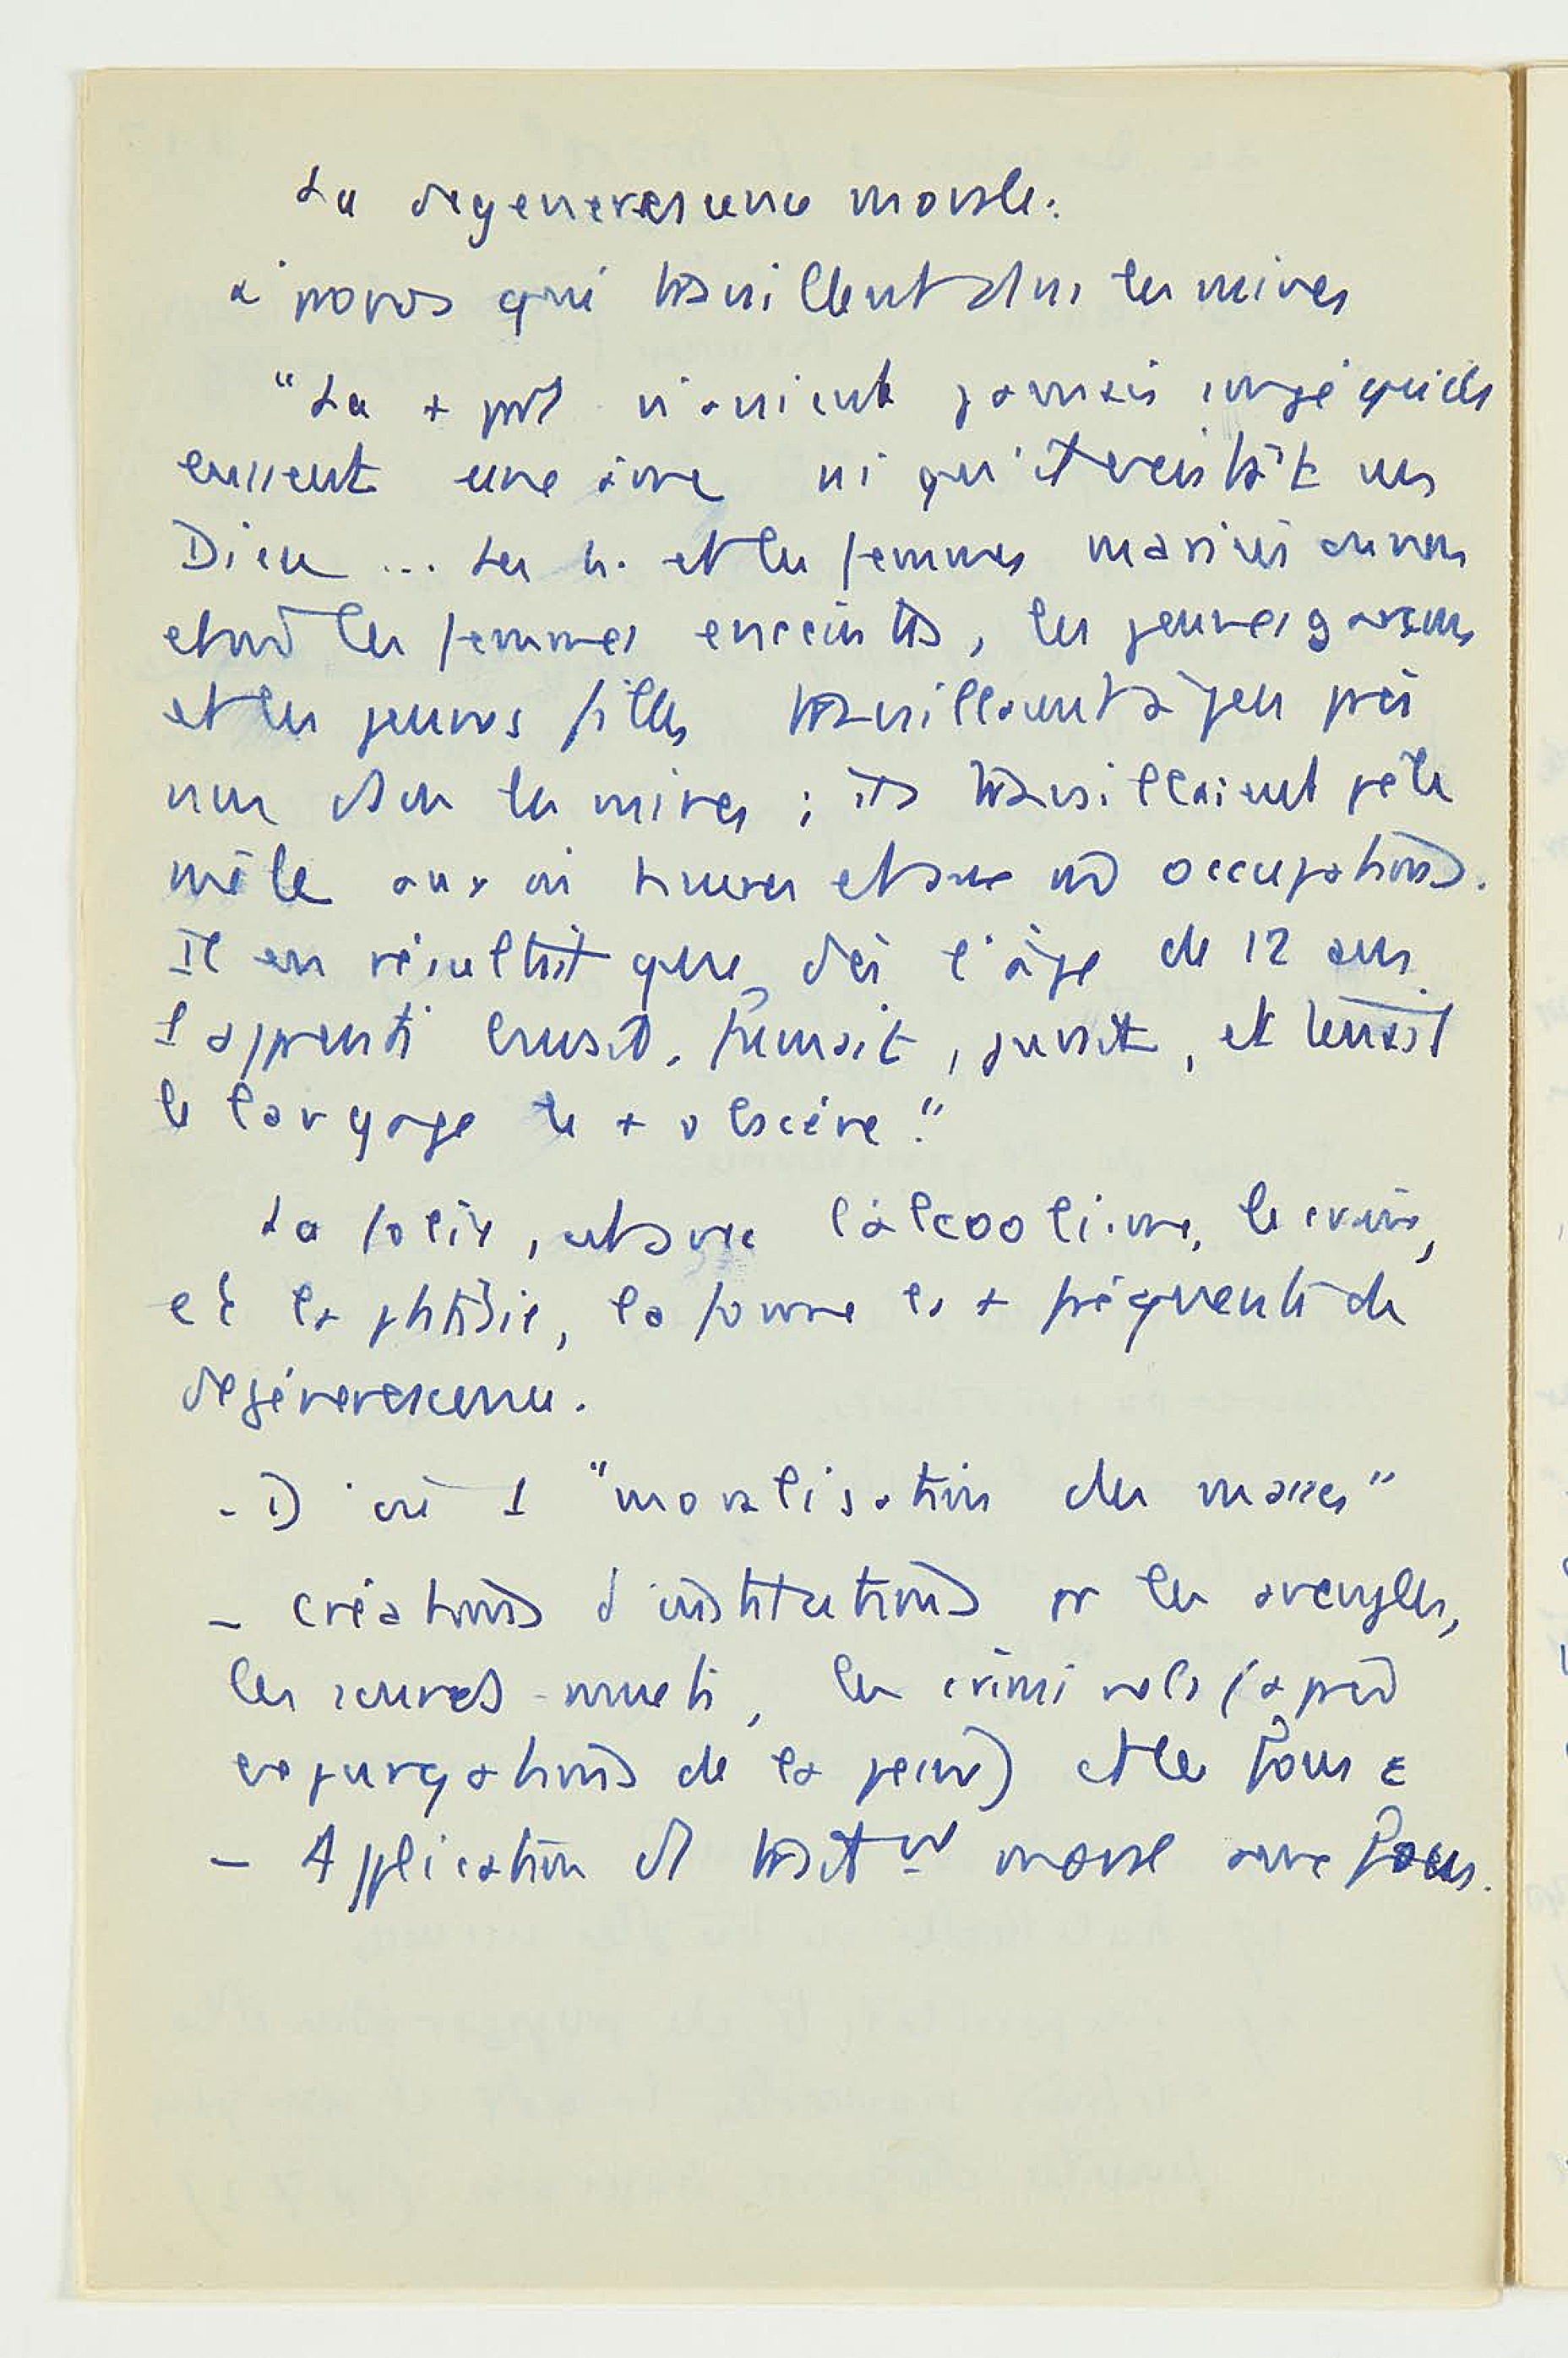 La dégénérescence morale.
qui travaillent dans les mines
"La + part n'avaient jamais songé qu'ils
eussent une âme ni qu'il existât un
Dieu ... Les h. et les femmes mariées ou non
et les femmes enceintes, les jeunes garçons
et les jeunes filles travaillaient à peu près
nus dans les mines ; ils travaillaient pêle
mêle aux mêmes heures et aux occupations.
Il en résultait que, dès l'âge de 12 ans
l'apprenti buvait, fumait, jurait, et tenait
le langage le + obscène."
La folie, est avec l'alcoolisme, le crime,
et la phtisie, la forme la + fréquente de
dégénérescence.
- D'où 1 "moralisation des masses"
- créations d'institutions pr les aveugles,
les sourds-muets, les criminels (après
expurgations de la peine) et les fous :
- Application du trait^nt moral aux fous.